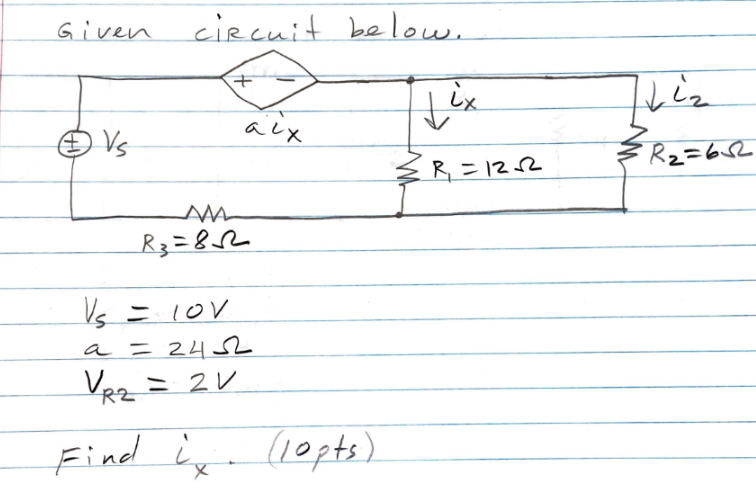 Given circuit below.
+ -
a ix
ix
i2
± Vs
R1 = 12Ω
R2=6Ω
R3=8Ω
Vs = 10V
a = 24Ω
VR2 = 2V
Find ix. (10pts)